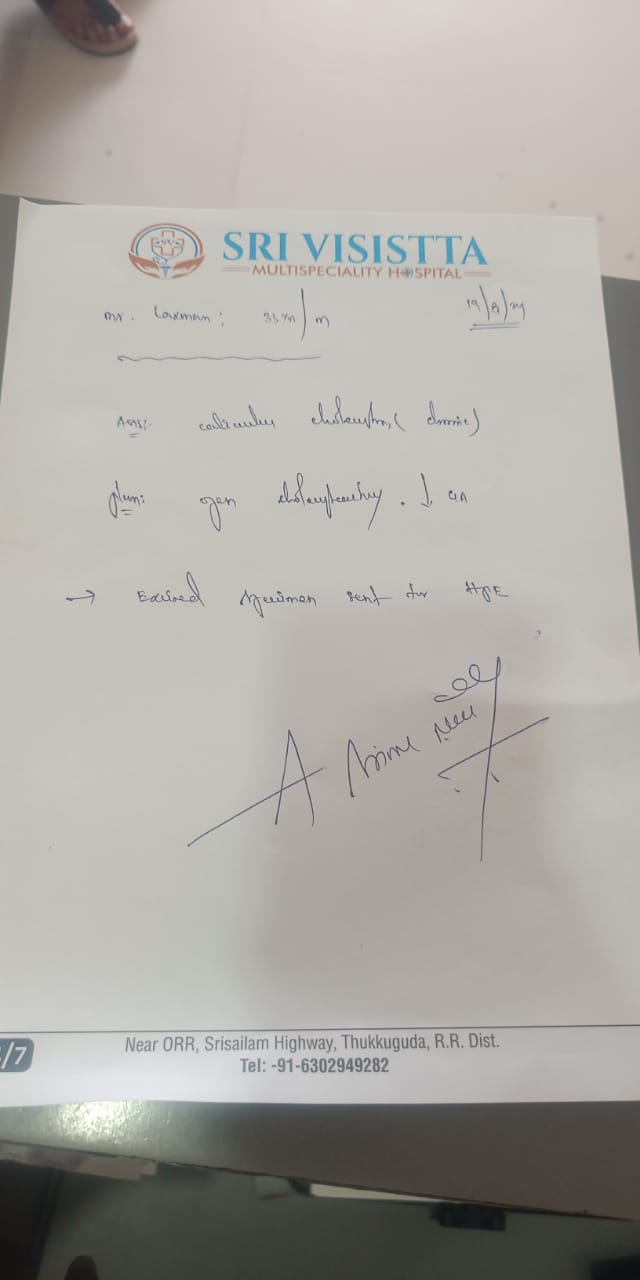 SVS
SRI VISISTTA
MULTISPECIALITY HOSPITAL
mr. Laxman; 33 yr/m 19/8/24
calculus cholecystitis (chronic)
plan: open cholecystectomy. ↓ GA
→ Excised specimen sent for HPE
/7
Near ORR, Srisailam Highway, Thukkuguda, R.R. Dist.
Tel: -91-6302949282